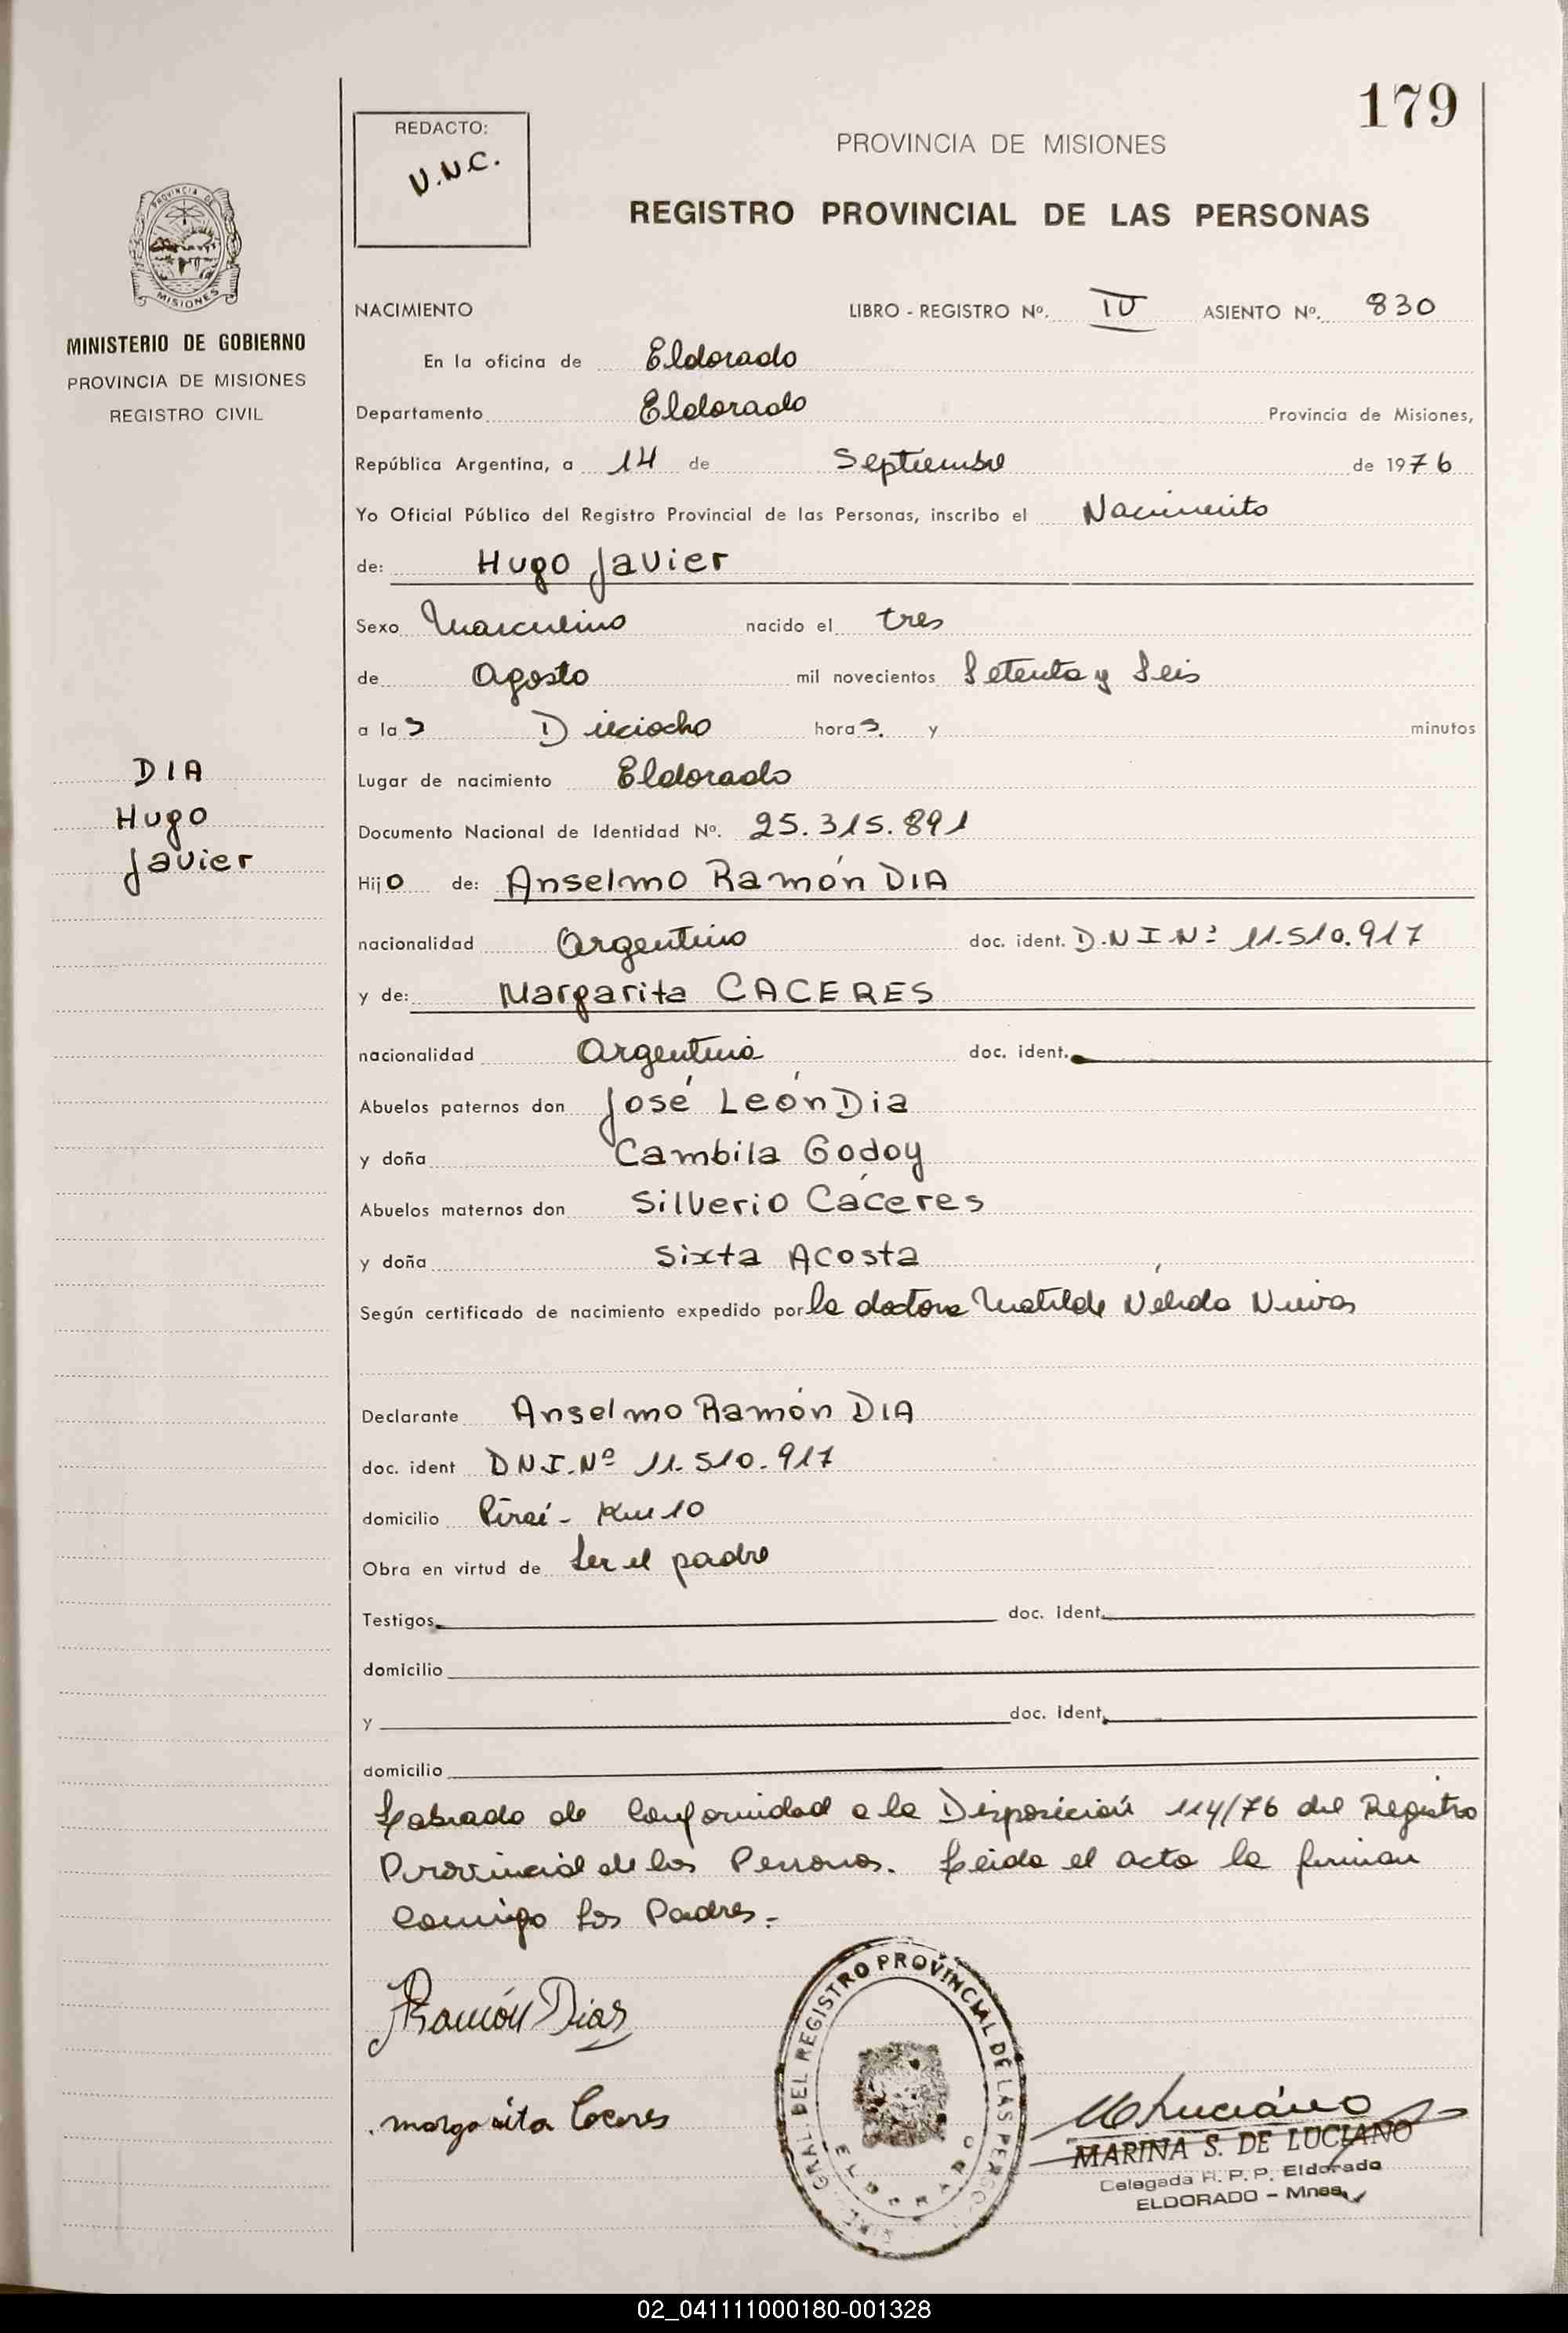 179
REDACTO:
V.N.C.
PROVINCIA DE MISIONES
REGISTRO PROVINCIAL DE LAS PERSONAS
PROVINCIA DE
MISIONES
MINISTERIO DE GOBIERNO
PROVINCIA DE MISIONES
REGISTRO CIVIL
NACIMIENTO LIBRO - REGISTRO Nº. IV ASIENTO Nº. 830
En la oficina de Eldorado
Departamento Eldorado Provincia de Misiones,
República Argentina, a 14 de Septiembre de 1976
Yo Oficial Público del Registro Provincial de las Personas, inscribo el Nacimiento
de: Hugo Javier
Sexo Masculino nacido el tres
de Agosto mil novecientos Setenta y Seis
a las Dieciocho horas. y minutos
DIA
Hugo
Javier
Lugar de nacimiento Eldorado
Documento Nacional de Identidad Nº. 25.315.891
Hijo de: Anselmo Ramón DIA
nacionalidad Argentino doc. ident. D.N.I.Nº 11.510.917
y de: Margarita CACERES
nacionalidad Argentina doc. ident.
Abuelos paternos don José León Dia
y doña Cambila Godoy
Abuelos maternos don Silverio Cáceres
y doña Sixta Acosta
Según certificado de nacimiento expedido por la doctora Matilde Nélida Nieves
Declarante Anselmo Ramón DIA
doc. ident D.N.I.Nº 11.510.917
domicilio Piraí - Km 10
Obra en virtud de Ser el padre
Testigos doc. ident.
domicilio
y doc. ident.
domicilio
Labrado de Conformidad a la Disposición 114/76 del Registro
Provincial de las Personas. Leida el acta la firman
Conmigo los Padres.-
Ramón Dias
margarita Caceres
GRAL. DEL REGISTRO PROVINCIAL DE LAS PERSO
ELDORADO
MARINA S. DE LUCIANO
Delegada R. P. P. Eldorado
ELDORADO - Mnes.
02_041111000180-001328